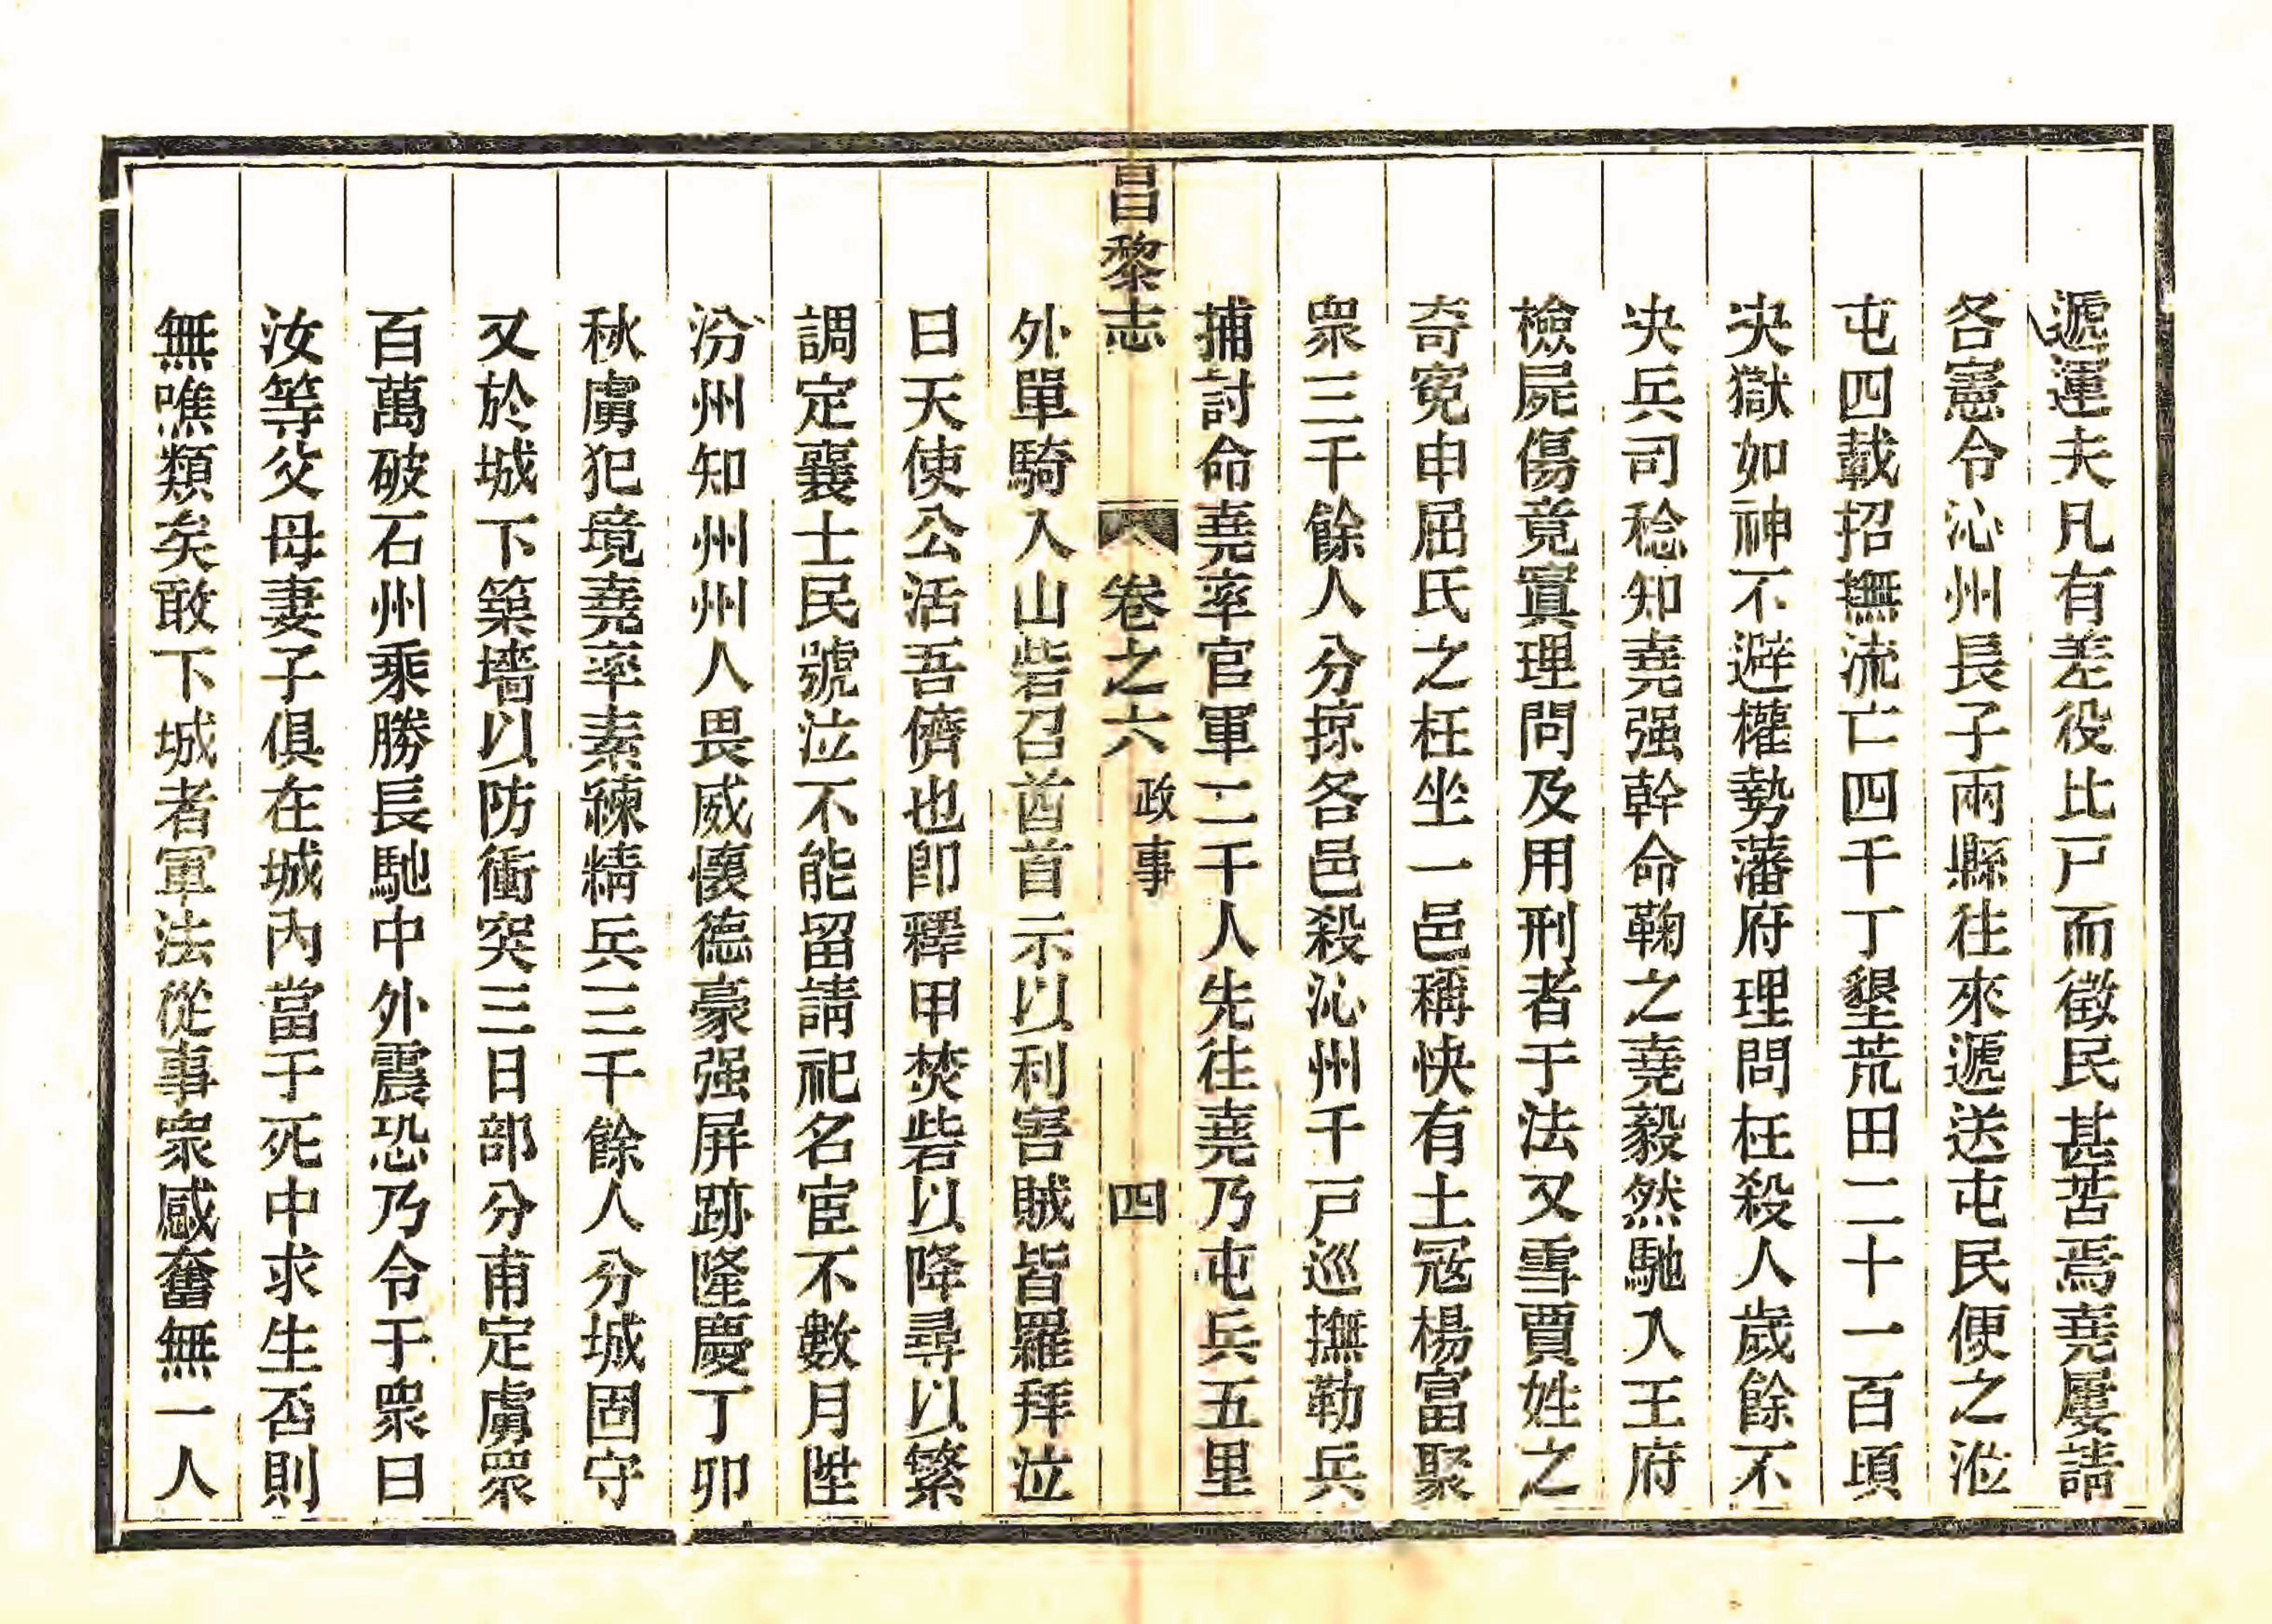 遞運夫凡有差役比戸而徵民甚苦焉堯屢請
各憲令沁州長子兩縣往來遞送屯民便之涖
屯四載招撫流亡四千丁墾荒田二十一百頃
决獄如神不避權勢藩府理問枉殺人歲餘不
决兵司稔知堯强幹命鞠之堯毅然馳入王府
檢屍傷竟寘理問及用刑者于法又雪賈姓之
奇寃申屈氏之枉坐一邑稱快有土冦楊富聚
衆三千餘人分掠各邑殺沁州千戸巡撫勒兵
捕討命堯率官軍二千人先往堯乃屯兵五里
昌黎志 卷之六 政事 四
外單騎入山砦召酋首示以利害賊皆羅拜泣
曰天使公活吾儕也卽釋甲焚砦以降尋以繁
調定襄士民號泣不能留請祀名宦不數月陞
汾州知州州人畏威懷德豪强屏跡隆慶丁卯
秋虜犯境堯率素練精兵三千餘人分城固守
又於城下築墻以防衝突三日部分甫定虜衆
百萬破石州乘勝長馳中外震恐乃令于衆曰
汝等父母妻子俱在城內當于死中求生否則
無噍類矣敢下城者軍法從事衆感奮無一人